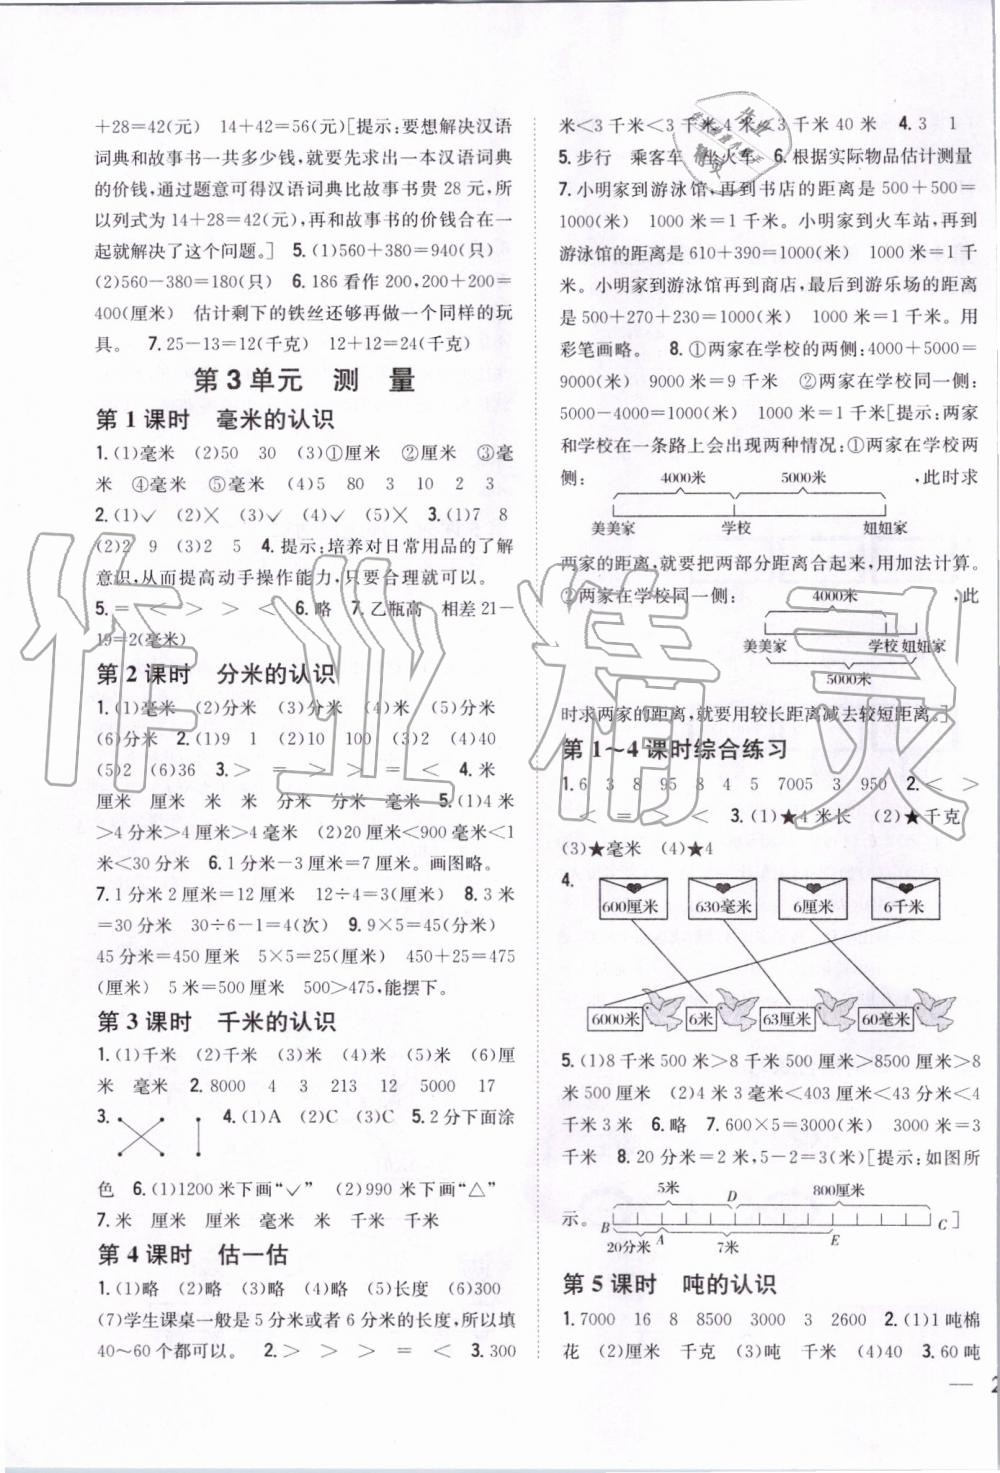 +28=42(元) 14+42=56(元)[提示:要想解决汉语
词典和故事书一共多少钱,就要先求出一本汉语词典
的价钱,通过题意可得汉语词典比故事书贵 28 元,所
以列式为 14+28=42(元),再和故事书的价钱合在一
起就解决了这个问题。] 5.(1)560+380=940(只)
(2)560-380=180(只) 6.186 看作 200,200+200=
400(厘米) 估计剩下的铁丝还够再做一个同样的玩
具。 7.25-13=12(千克) 12+12=24(千克)
第 3 单元 测 量
第 1 课时 毫米的认识
1.(1)毫米 (2)50 30 (3)①厘米 ②厘米 ③毫
米 ④毫米 ⑤毫米 (4)5 80 3 10 2 3
2.(1)✓ (2)╳ (3)✓ (4)✓ (5)╳ 3.(1)7 8
(2)2 9 (3)2 5 4.提示:培养对日常用品的了解
意识,从而提高动手操作能力,只要合理就可以。
5.= < > > < 6.略 7.乙瓶高 相差21-
19=2(毫米)
第 2 课时 分米的认识
1.(1)毫米 (2)分米 (3)分米 (4)米 (5)分米
(6)分米 2.(1)9 1 (2)10 100 (3)2 (4)40
(5)2 (6)36 3.> = > > = < 4.米
厘米 厘米 米 米 分米 分米 毫米 5.(1)4 米
>4 分米>4 厘米>4 毫米 (2)20 厘米<900 毫米<1
米<30 分米 6.1 分米-3 厘米=7 厘米。画图略。
7.1 分米 2 厘米=12 厘米 12÷4=3(厘米) 8.3 米
=30 分米 30÷6-1=4(次) 9.9×5=45(分米)
45 分米=450 厘米 5×5=25(厘米) 450+25=475
(厘米) 5 米=500 厘米 500>475,能摆下。
第 3 课时 千米的认识
1.(1)千米 (2)千米 (3)米 (4)米 (5)米 (6)厘
米 毫米 2.8000 4 3 213 12 5000 17
3. 4.(1)A (2)C (3)C 5.2 分下面涂
色 6.(1)1200 米下画“✓” (2)990 米下画“△”
7.米 厘米 厘米 毫米 米 千米 千米
第 4 课时 估一估
1.(1)略 (2)略 (3)略 (4)略 (5)长度 (6)300
(7)学生课桌一般是 5 分米或者 6 分米的长度,所以填
40~60 个都可以。 2.> > > = < 3.300
米<3 千米<3 千米 4 米<3 千米 40 米 4.3 1
5.步行 乘客车 坐火车 6.根据实际物品估计测量
7.小明家到游泳馆,再到书店的距离是 500+500=
1000(米) 1000 米=1 千米。小明家到火车站,再到
游泳馆的距离是 610+390=1000(米) 1000 米=1 千
米。小明家到游泳馆再到商店,最后到游乐场的距离
是 500+270+230=1000(米) 1000 米=1 千米。用
彩笔画略。 8.①两家在学校的两侧:4000+5000=
9000(米) 9000 米=9 千米 ②两家在学校同一侧:
5000-4000=1000(米) 1000 米=1 千米[提示:两家
和学校在一条路上会出现两种情况:①两家在学校两
侧: 4000米 5000米 ,此时求
美美家 学校 妞妞家
两家的距离,就要把两部分距离合起来,用加法计算。
②两家在学校同一侧: 4000米 ,此
美美家 学校 妞妞家
5000米
时求两家的距离,就要用较长距离减去较短距离。]
第 1~4 课时综合练习
1.6 3 8 95 8 4 5 7005 3 950 2.< >
< = > < 3.(1)★4 米长 (2)★千克
(3)★毫米 (4)★4
4.
600厘米 630毫米 6厘米 6千米
6000米 6米 63厘米 60毫米
5.(1)8 千米 500 米>8 千米 500 厘米>8500 厘米>8
米 500 厘米 (2)4 米 3 毫米<403 厘米<43 分米<4
千米 3 米 6.略 7.600×5=3000(米) 3000 米=3
千米 8.20 分米=2 米,5-2=3(米)[提示:如图所
5米 D 800厘米
示。 B C ]
20分米 A 7米 E
第 5 课时 吨的认识
1.7000 16 8 8500 3000 3 2600 2.(1)1 吨棉
花 (2)厘米 千克 (3)吨 千米 (4)40 3.60 吨
— 2
作业精灵